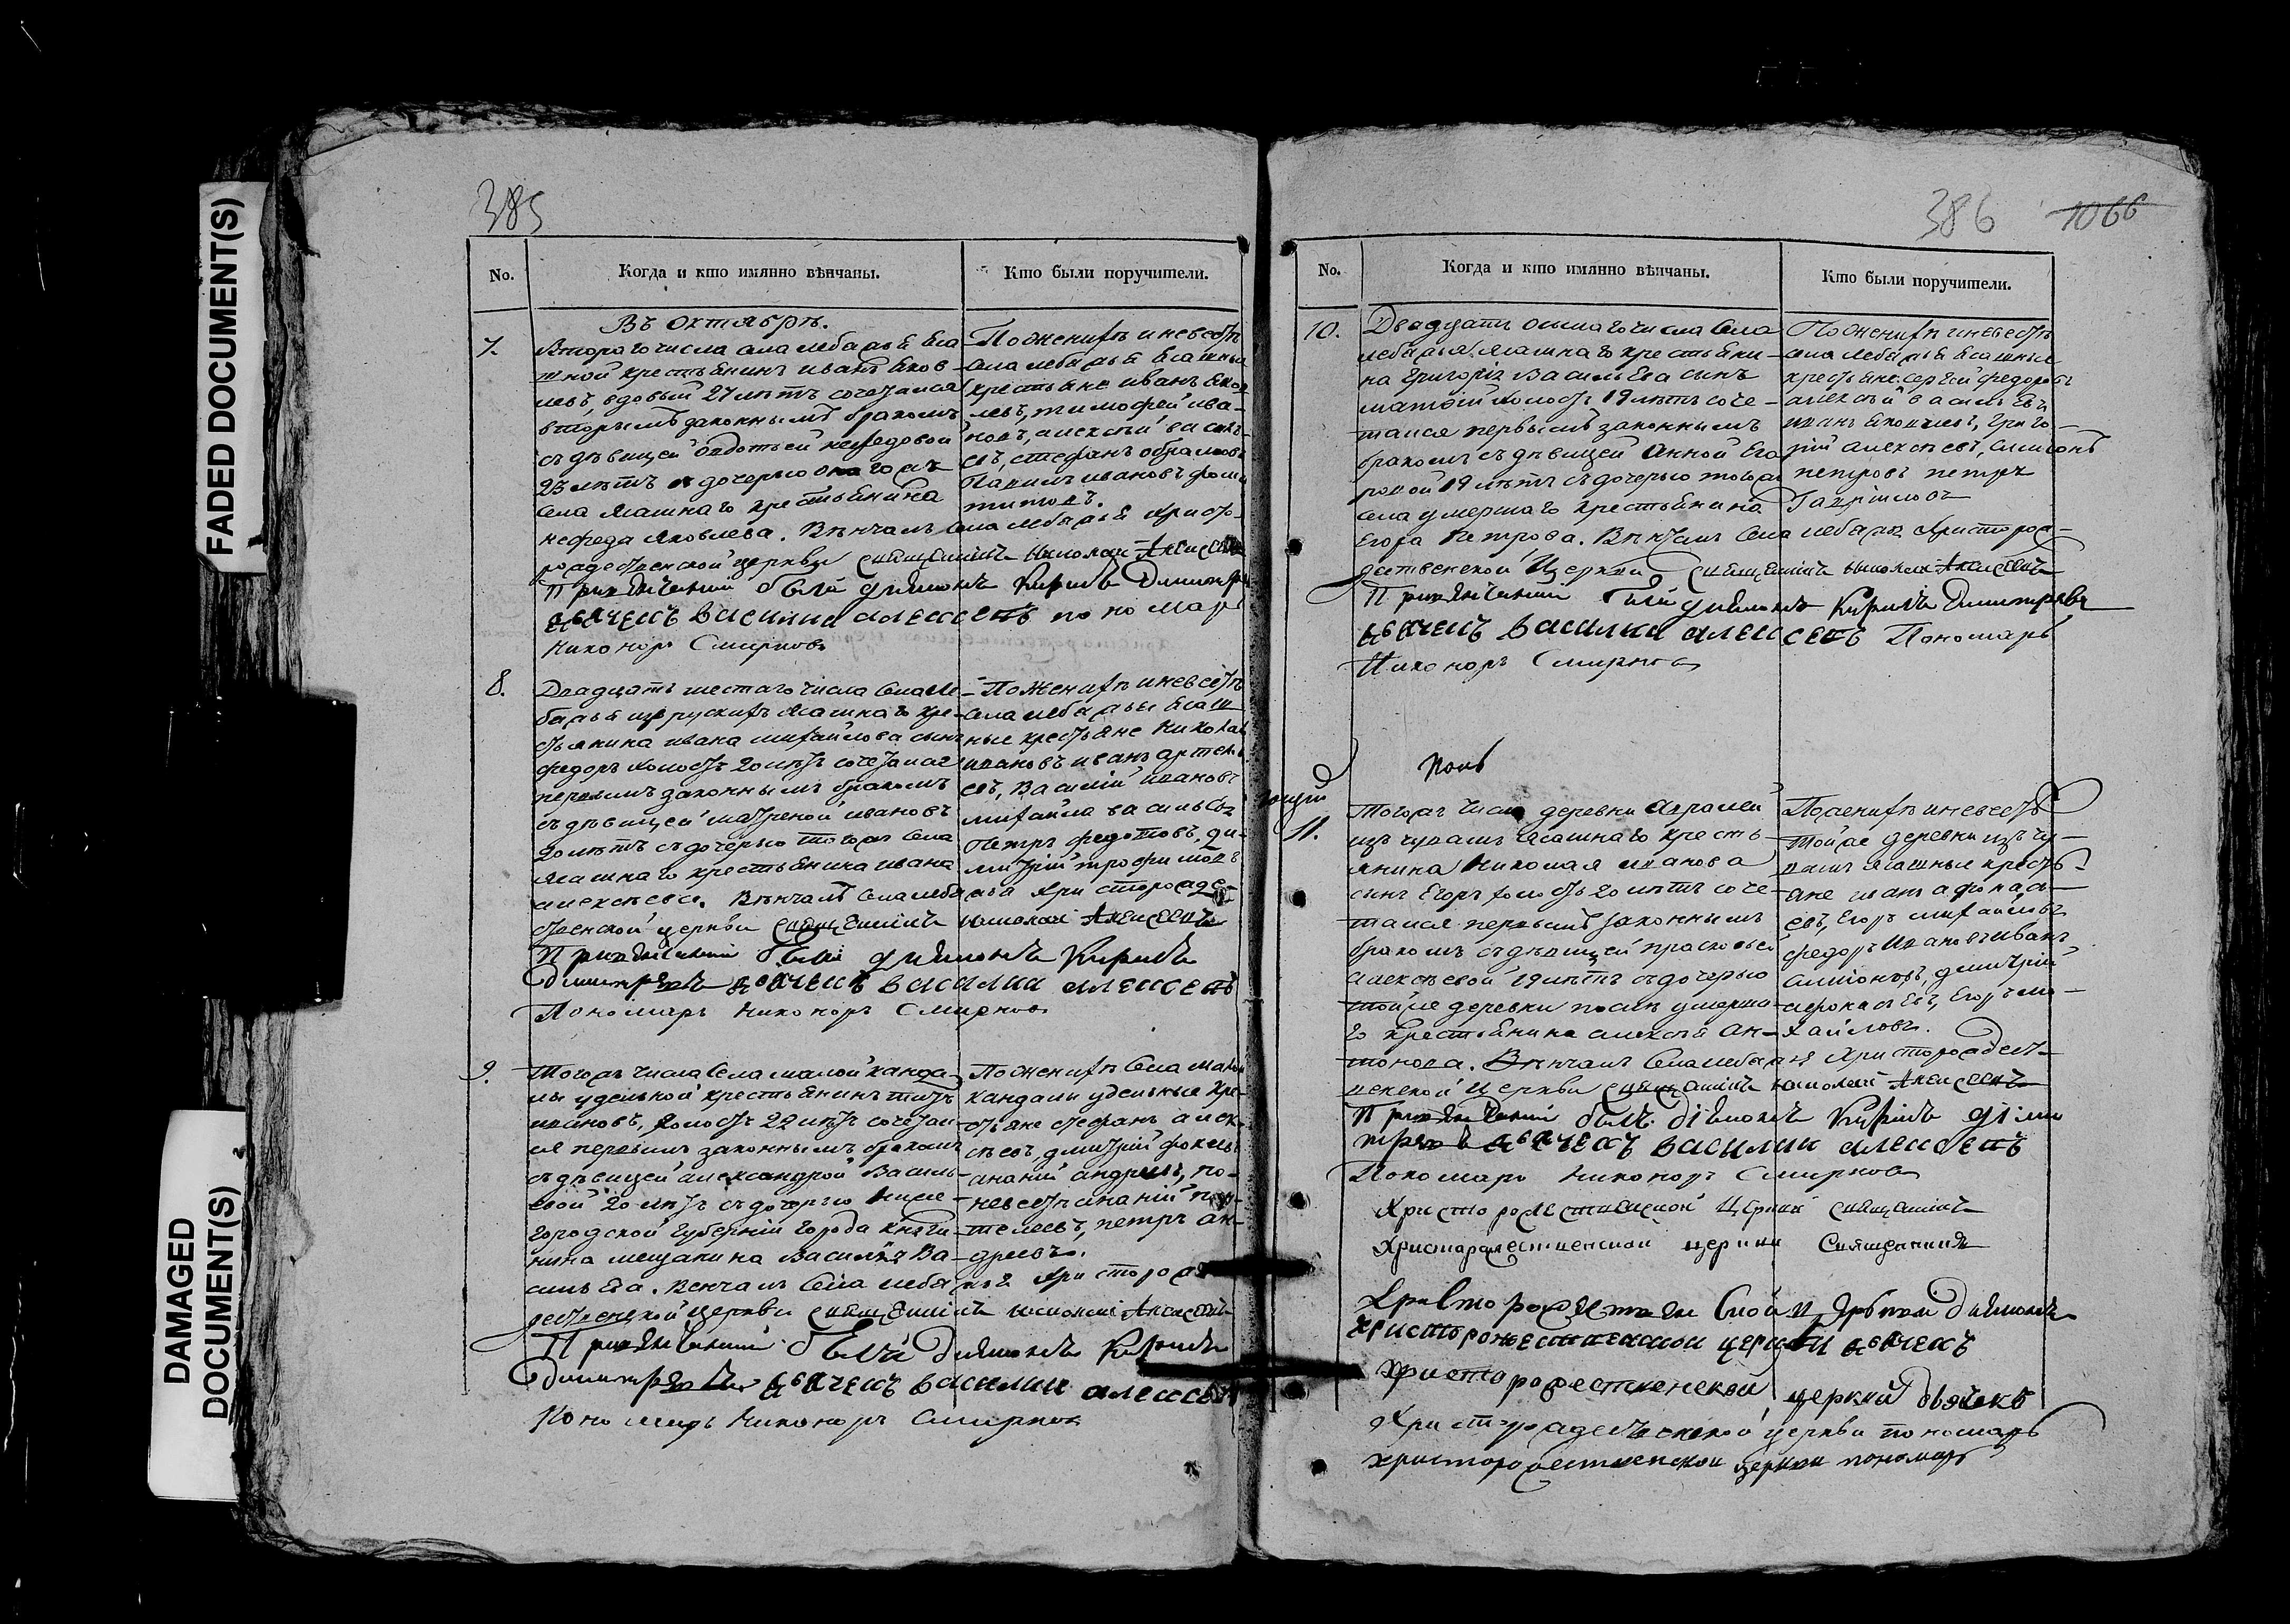 FADED DOCUMENT(S)
DAMAGED
DOCUMENT(S)
385
No.
Когда и кто имянно вѣнчаны.
Кто были поручители.
Въ Октябрѣ.
7.
Втораго числа села лебажья Яса
шной крестьянинъ иванъ Яков
левъ, вдовый 27 лѣтъ сочетался
вторымъ законнымъ бракомъ
съ дѣвицей
23 лѣтъ дочерью онаго жъ
села Ясашнаго крестьянина
нефеда Яковлева. Вѣнчалъ села лебажья Христо
рождественской церкви священникъ николай Алексеевъ
При вѣнчаніи были дьяконъ Кирилъ Димитріевъ
дьячекъ василии алексеевъ пономарь
Никоноръ Смирновъ
По женихѣ и невестѣ
села лебажья Ясашныя
крестьяне иванъ Яков
левъ, тимофей ива-
новъ, алексѣй василь
евъ, стефанъ
ивановъ
титовъ.
8.
Двадцать шестаго числа села ле-
бажья Ясашнаго кре-
стьянина ивана михайлова сынъ
федоръ холостъ 20 лѣтъ сочетался
первымъ законнымъ бракомъ
съ дѣвицей матреной ивановой
20 лѣтъ съ дочерью тогожъ села
Ясашнаго крестьянина ивана
алексѣева. Вѣнчалъ села лебажья Христорожде-
ственской церкви священникъ николай Алексеевъ
При вѣнчаніи были дьяконъ Кирилъ
Димитріевъ дьячекъ василии алексеевъ
Пономарь Никоноръ Смирновъ
По женихѣ и невестѣ
села лебажьи Ясаш
ные крестьяне Николай
ивановъ иванъ артемь
евъ, Василій ивановъ
михайла васильевъ
Петръ федотовъ, ди-
митрій трофимовъ
9.
Тогожъ числа села малой канда-
лы удельной крестьянинъ титъ
ивановъ, холостъ 22 лѣтъ сочетал-
ся первымъ законнымъ бракомъ
съ дѣвицей александрой Василь-
евой 20 лѣтъ съ дочерью Ниже-
городской Губерніи города Княги-
нина мещанина Василья Ва-
сильева. Венчалъ села лебажья Христорож
дественской церкви священникъ николай Алексеевъ
При вѣнчаніи были дьяконъ Кирилъ
Димитріевъ дьячекъ василии алексеевъ
Пономарь Никоноръ Смирновъ
По женихѣ села малой
кандалы удельные кре-
стьяне стефанъ алек
сѣевъ, дмитрій
ананій андреевъ, по
невестѣ ананій пан-
телеевъ, петръ ан-
дреевъ.
386
1066
No.
Когда и кто имянно вѣнчаны.
Кто были поручители.
10.
Двадцать осьмаго числа села
лебажья Ясашнаго крестьяни-
на Григорія Васильева сынъ
матвѣй холостъ 19 лѣтъ соче-
тался первымъ законнымъ
бракомъ съ дѣвицей Анной Его
ровой 19 лѣтъ съ дочерью тогожъ
села умершаго крестьянина
Егора Петрова. Вѣнчалъ села лебажья Христорож-
дественской Церкви священникъ николай Алексеевъ
При вѣнчаніи были дьяконъ Кирилъ Димитріевъ
дьячекъ василии алексеевъ Пономарь
Никоноръ Смирновъ
По женихѣ и невестѣ
села лебажья Ясашныя
крестьяне: сергѣй федоровъ
алексѣй васильевъ
иванъ Яковлевъ, Григо-
рій алексѣевъ, симионъ
петровъ петръ
Гавриловъ
11.
Тогожъ числа деревни
изъ чувашъ Ясашнаго кресть-
янина Николая иванова
сынъ Егоръ холостъ 20 лѣтъ соче-
тался первымъ законнымъ
бракомъ съ дѣвицей прасковьей
алексѣевой 19 лѣтъ съ дочерью
той же деревни послѣ умерша-
го крестьянина алексѣя Ан-
тонова. Вѣнчалъ села лебажья Христорождест-
венской Церкви священникъ николай Алексеевъ
При вѣнчаніи были дьяконъ Кирилъ Дими
тріевъ дьячекъ василии алексеевъ
Пономарь Никоноръ Смирновъ
По женихѣ и невестѣ
той же деревни изъ чу-
вашъ ясашные кресть-
яне иванъ афонась-
евъ, Егоръ михайловъ
федоръ ивановъ иванъ
симионовъ, дмитрій
афонасьевъ, Егоръ ми-
хайловъ.
Христорождественской Церкви священникъ
Христорождественской церкви Священникъ
Христорождественской церкви дьяконъ
христорождественской церкви дьячекъ
христорождественской церкви дьячекъ
Христорождественской церкви пономарь
христорождественской церкви пономарь